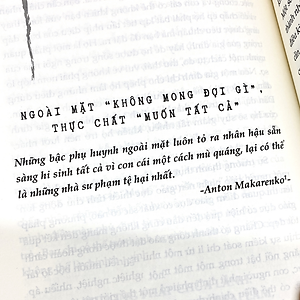 NGOÀI MẶT “KHÔNG MONG ĐỢI GÌ”,
THỰC CHẤT “MUỐN TẤT CẢ”
Những bậc phụ huynh ngoài mặt luôn tỏ ra nhân hậu sẵn
sàng hi sinh tất cả vì con cái một cách mù quáng, lại có thể
là những nhà sư phạm tệ hại nhất.
-Anton Makarenko¹-